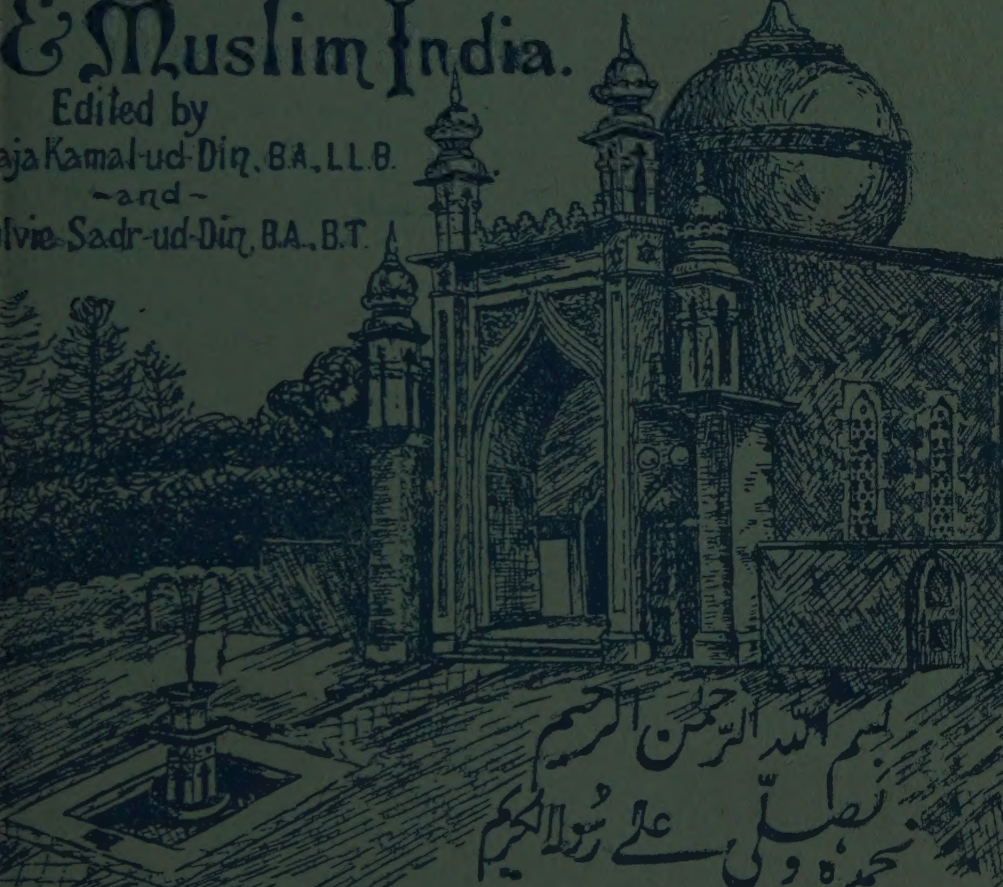 & Muslim India.
Edited by
aja Kamal-ud-Din, B.A., LL.B.
~and~
lvie Sadr-ud-Din, B.A., B.T.
بسم الله الرحمن الرحيم
نحمده و نصلّی علے رسُوله الکریم